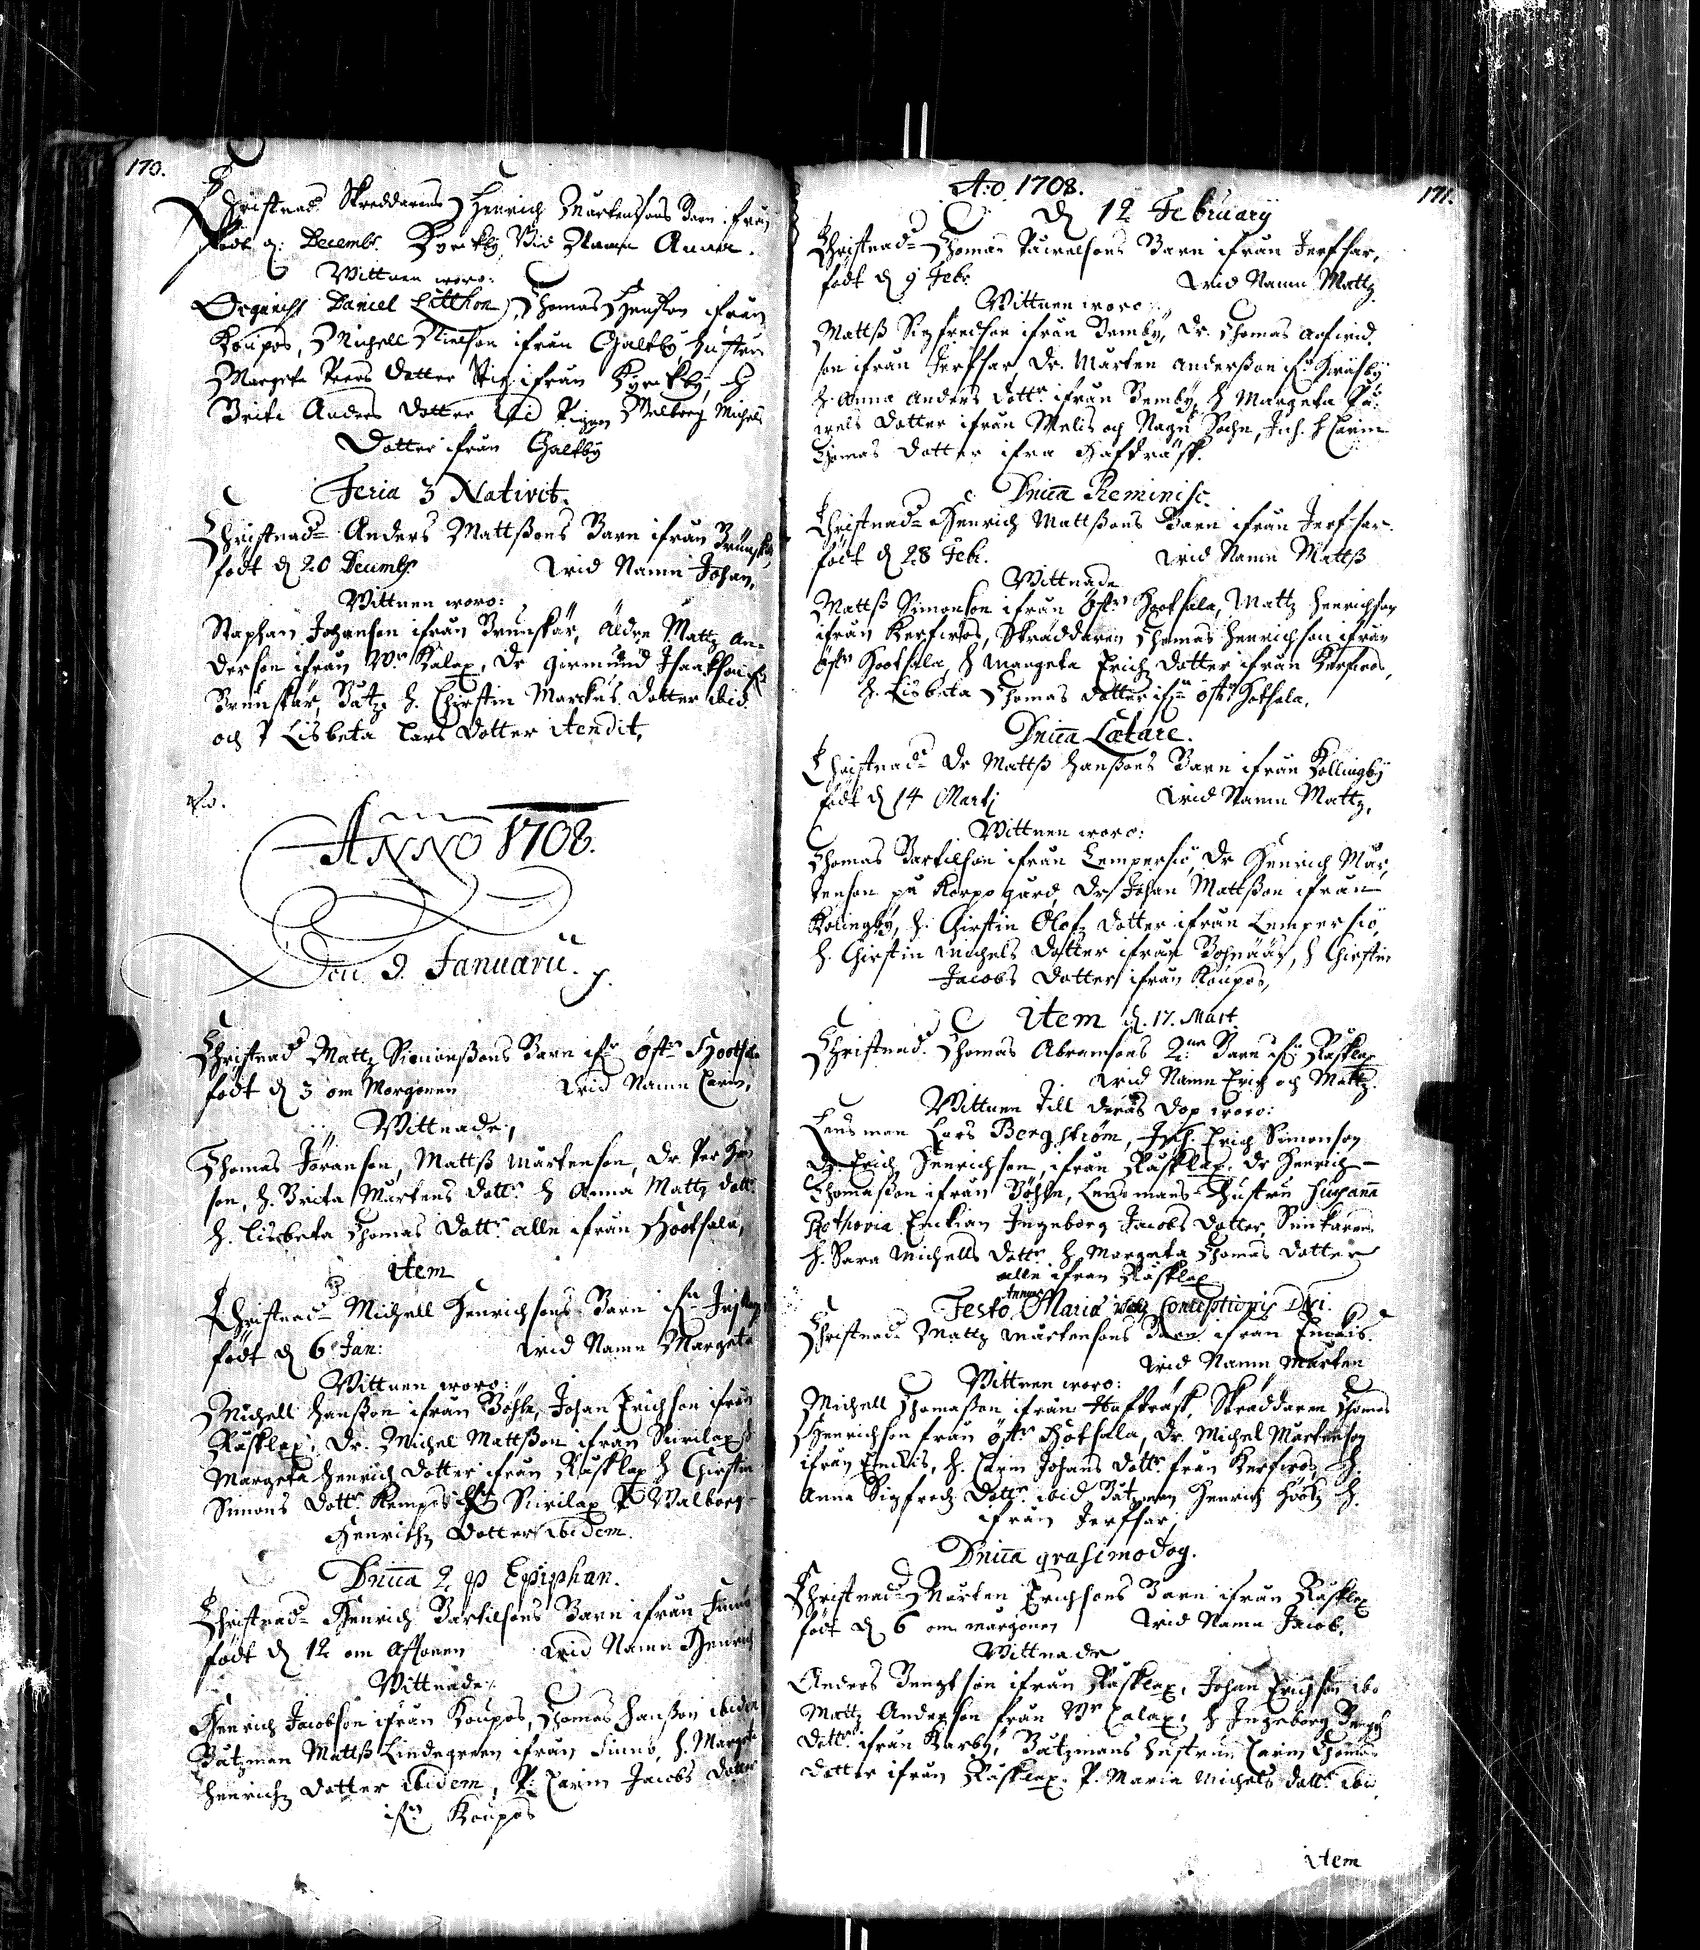 170.
Christnad Skreddarens Henrich Mårtensons Barn ifrån
födt d: Decembr. Kyrckby Vid Namn Anna.
Wittnen woro:
Organist Daniel Litthon, Thomas Henson ifrån
Koupos, Michell Nielson ifrån Galtby, hustru
Margeta Peers dotter Stig ifrån Kyrckby, H
Brita Anders dotter Pigan Walborg Michels
Dotter ifrån Galtby
Feria 3 Nativit.
Christnad Anders Mattßons Barn ifrån Brunskär,
födt d 20 Decembr. wid Namn Johan,
Wittnen woro:
Staphan Johanson ifrån Brunskär, äldre Mattz An-
derson ifrån Wr Kalax, Dr Girmund Isaakson ifn
Brunskär, Båtz. H. Chirstin Marckus dotter ibid.
och P Lisbeta Lars dotter itendit,
Anno 1708.
Den 9. Januarii.
Christnad Mattz Simonßons Barn ifn Östr Hootsala
födt d 3 om Morgonen wid Namn Carin,
Wittnade,
Thomas Jöranson, Mattß Mårtenson, Dr. Per
son, H. Brita Mårtens dottr. H Anna Mattz dottr.
H. Lisbeta Thomas dottr. alle ifrån Hootsala,
item
Christnad Michell Henrichsons Barn ifn
födt d 6 Jan: wid Namn Margeta
Wittnen woro:
Michell Hansson ifrån Böhle, Johan Erichson ifrån
Råsklax, Dr. Michel Mattßon ifrån
Margeta Henrich dotter ifrån Råsklax H Chirstin
Simons dottr. P Walborg
Henrichz dotter ibidem.
Dnica 2 p Epiphan.
Christnad Henrich Bartilsons Barn ifrån Finnö
födt d 12 om Aftonen wid Namn Henrich
Wittnade:
Henrich Jacobson ifrån Koupos, Thomas Hanßon ibidem
Båtzman Mattß Lindegreen ifrån Finnö, H. Margeta
Henrichz dotter ibidem, P. Carin Jacobs dotter
ifn Koupos
171.
A:o 1708.
d 12 February
Christnad Thomas Påwelsons Barn ifrån Jerfsar,
födt d 9 Febr. wid Namn Mattz
Wittnen woro:
Mattß Sigfredson ifrån Bemby, Dr. Thomas Arfwid-
son ifrån Jerfsar Dr. Mårten Anderßon ifn
H. Anna Anders dottr. ifrån Bemby, H Margeta På-
wels dotter ifrån Welis och Nagu Sochn, Jnh. H Carin
Thomas dotter ifra Hafträsk.
Dnica Reminisc.
Christnad Henrich Mattßons Barn ifrån Jerfsar
födt d 28 Feb. wid Namn Mattß
Wittnade
Mattß Simonson ifrån Östr Hootsala, Mattz Henrichson
ifrån Kerfwos, Skräddaren Thomas Henrichson ifrån
Östr Hootsala, H Margeta Erich dotter ifrån Kerfwos,
H. Lisbeta Thomas dotter ifn Östr Hotsala,
Dnica Lætare.
Christnad Dr Mattß Hanßons Barn ifrån Kollingby
födt d 14 Marti wid Namn Mattz,
Wittnen woro:
Thomas Bartilson ifrån Lempersiö, Dr Henrich Mår-
tenson på Korpo gård, Dr Johan Mattßon ifrån
Kolingby, H. Chirstin Olofz dotter ifrån Lempersiö,
H. Chirstin Michels dotter ifrån, H Chirstin
Jacobs dotter ifrån Koupos,
item d. 17. Mart.
Christnad. Thomas Abramsons 2:ne Barn ifn Råsklax
wid Namn Erich och Mattz.
Wittnen till deras dop woro:
Lensman Lars Bergström, Jnh. Erich Simonson
Dr. Erich Henrichson, ifrån Råsklax. Dr Henrich
Thomaßon ifrån Böhle, Lensmans Hustru Susanna
Enckian Ingeborg Jacobs dotter,
H. Sara Michells dottr. H Margeta Thomas dotter
alle ifrån Råsklax
Festo Mariæ Conceptionis Dni.
Christnad Mattz Mårtensons Barn ifrån
wid Namn Mårten
Wittnen woro:
Michell Thomaßon ifrån Hafträsk, Skräddaren Thomas
Henrichson från Östr Hotsala, Dr. Michel Mårtenson
ifrån, H. Carin Johans dottr. från Kerfwos, H.
Anna Sigfredz dottr. ibid Båtzman Henrich
ifrån Jerfsar,
Dnica qvasimodog.
Christnad Mårten Erichsons Barn ifrån Råsklax
födt d 6 om morgonen wid Namn Jacob,
Wittnade
Anders Bengtson ifrån Råsklax, Johan Erichson ibo
Mattz Anderson från Wr Calax, H Ingeborg Bengtz
dottr. ifrån Korby, Båtzmans hustrun Carin Thomas
dotter ifrån Råsklax. P. Maria Michels dottr. ibid
item